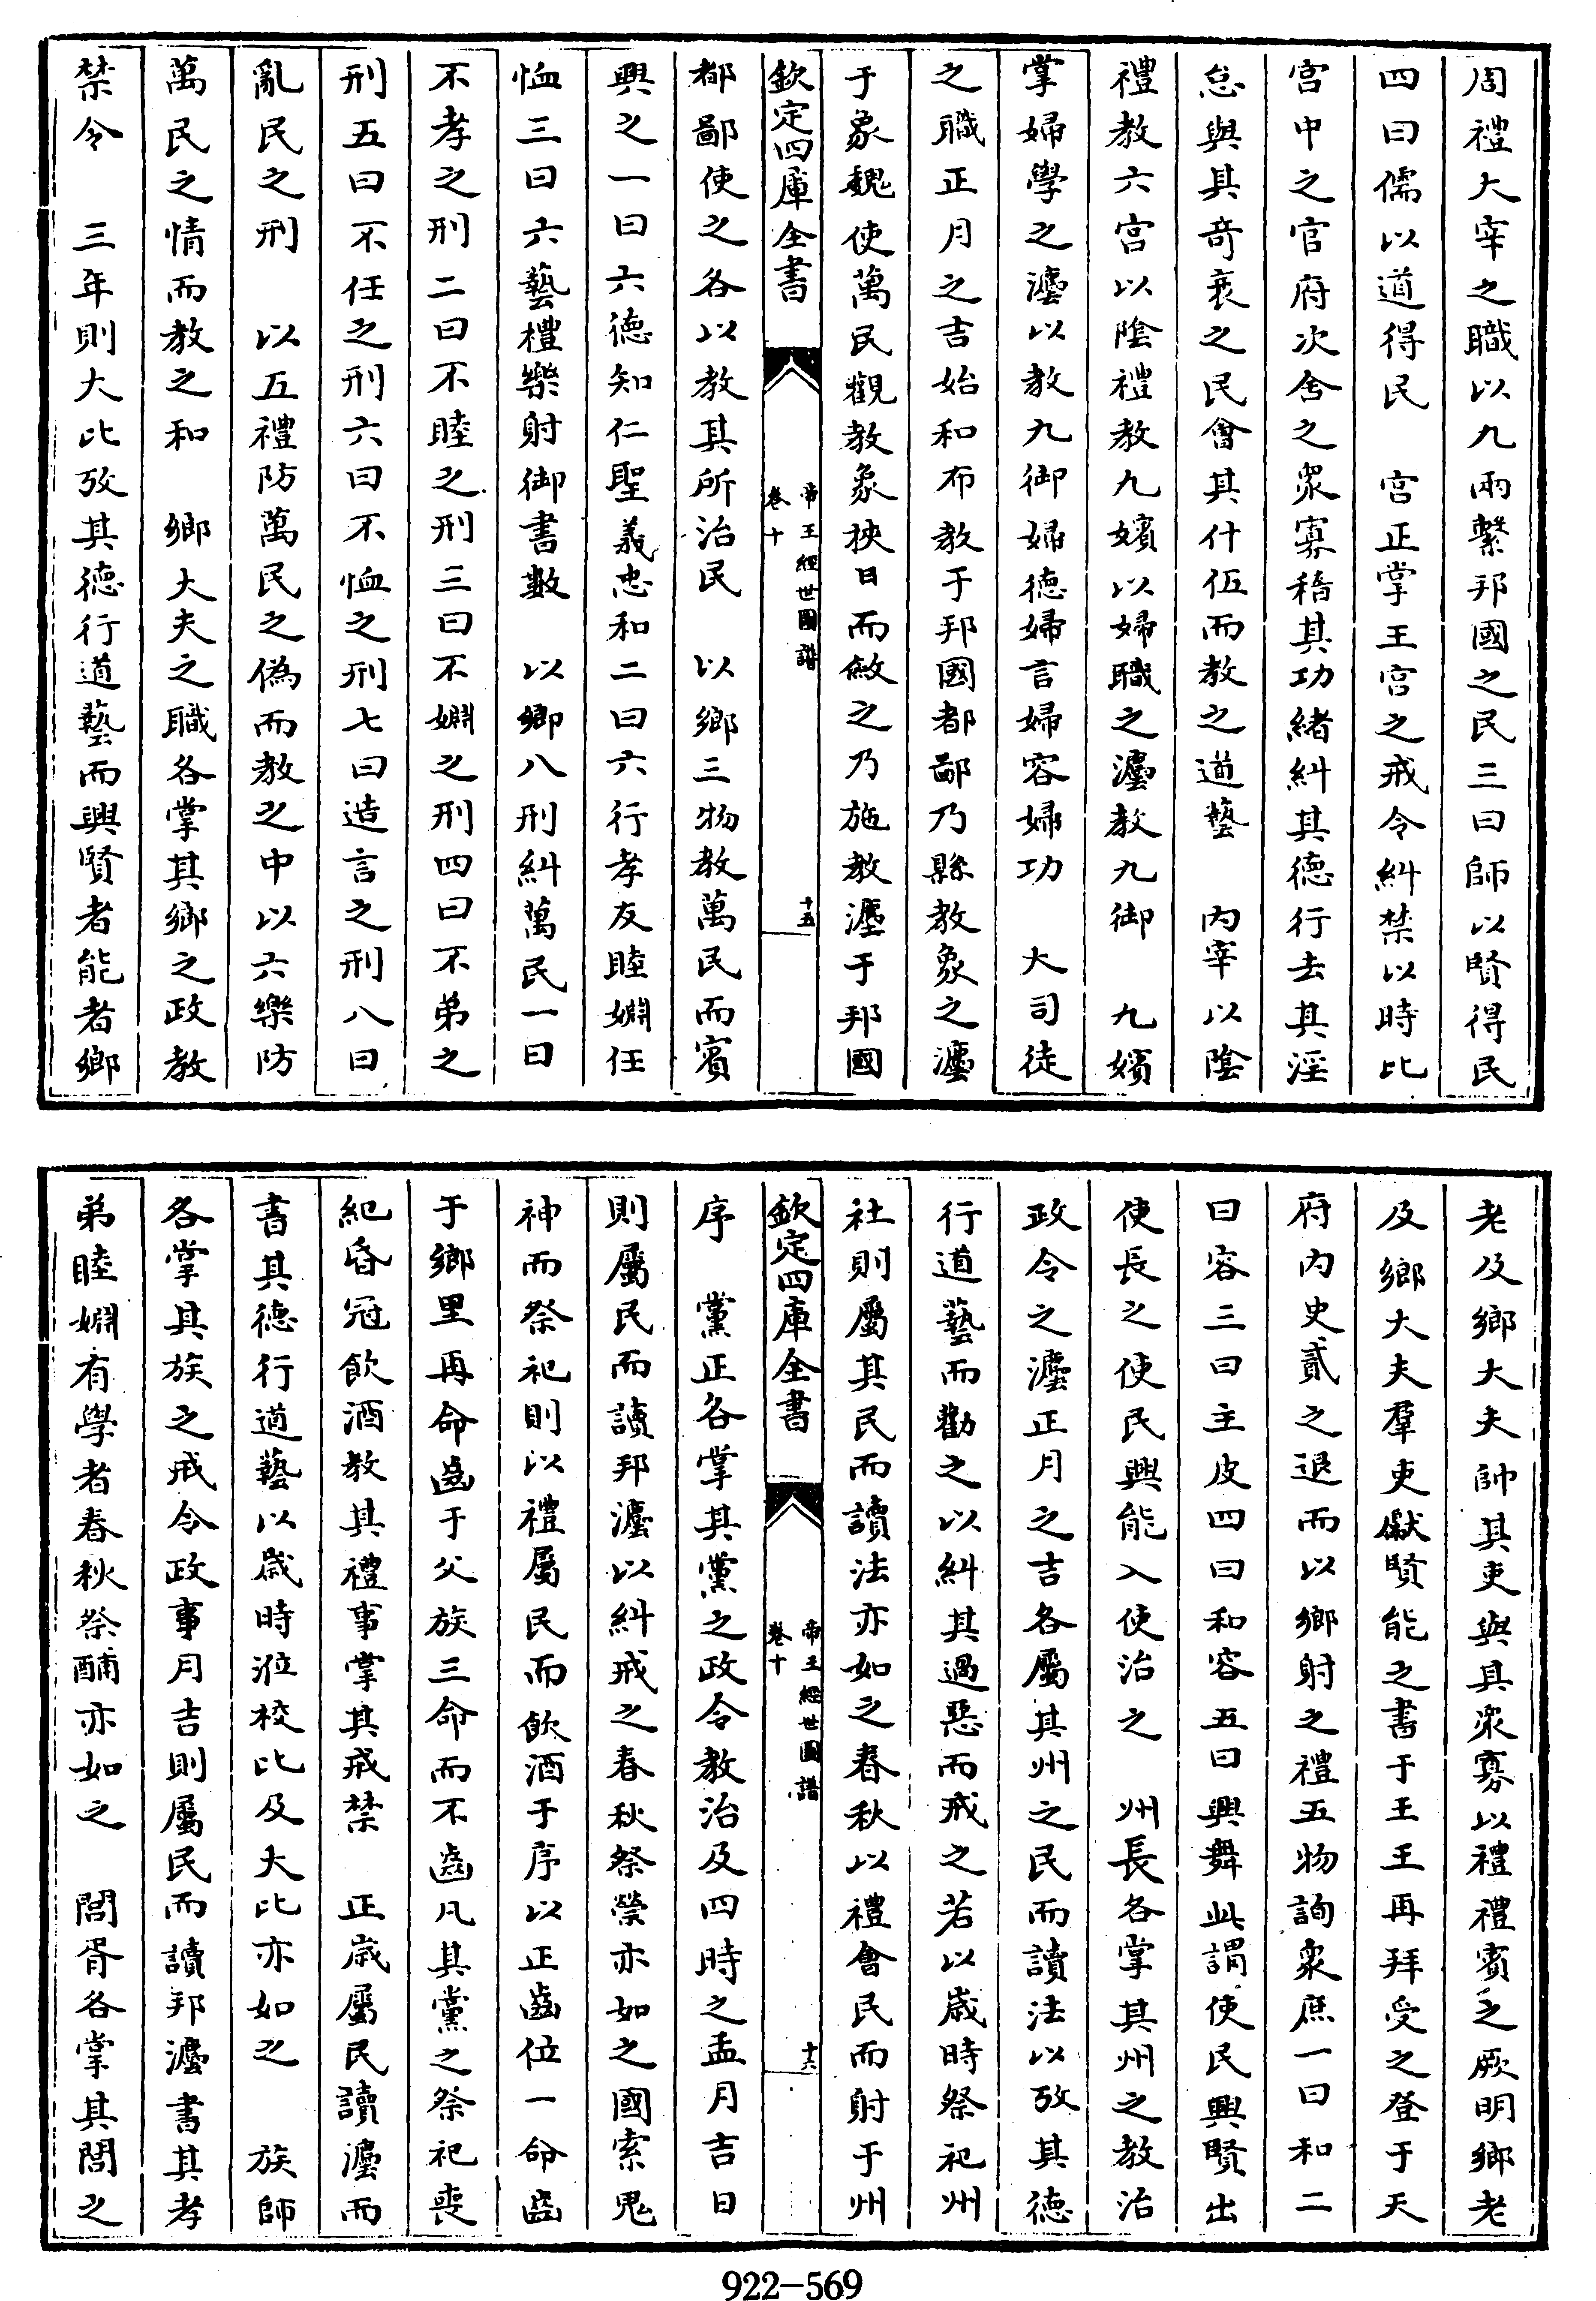 周禮大宰之職以九兩繫邦國之民三曰師以賢得民
四曰儒以道得民　宫正掌王宫之戒令糾禁以時比
宫中之官府次舍之衆寡稽其功緒糾其德行去其淫
怠與其奇衺之民會其什伍而教之道藝　内宰以陰
禮教六宫以陰禮教九嬪以婦職之灋教九御　九嬪
掌婦學之灋以教九御婦德婦言婦容婦功　大司徒
之職正月之吉始和布教于邦國都鄙乃縣教象之灋
于象魏使萬民觀教象挾日而斂之乃施教灋于邦國
欽定四庫全書
帝王經世圖譜
卷十
十五
都鄙使之各以教其所治民　以鄉三物教萬民而賓
興之一曰六德知仁聖義忠和二曰六行孝友睦婣任
恤三曰六藝禮樂射御書數　以鄉八刑糾萬民一曰
不孝之刑二曰不睦之刑三曰不婣之刑四曰不弟之
刑五曰不任之刑六曰不恤之刑七曰造言之刑八曰
亂民之刑　以五禮防萬民之偽而教之中以六樂防
萬民之情而教之和　鄉大夫之職各掌其鄉之政教
禁令　三年則大比攷其德行道藝而興賢者能者鄉
老及鄉大夫帥其吏與其衆寡以禮禮賓之厥明鄉老
及鄉大夫羣吏獻賢能之書于王王再拜受之登于天
府内史貳之退而以鄉射之禮五物詢衆庶一曰和二
曰容三曰主皮四曰和容五曰興舞此謂使民興賢出
使長之使民興能入使治之　州長各掌其州之教治
政令之灋正月之吉各屬其州之民而讀法以攷其德
行道藝而勸之以糾其過惡而戒之若以歲時祭祀州
社則屬其民而讀法亦如之春秋以禮會民而射于州
欽定四庫全書
帝王經世圖譜
卷十
十六
序　黨正各掌其黨之政令教治及四時之孟月吉日
則屬民而讀邦灋以糾戒之春秋祭禜亦如之國索鬼
神而祭祀則以禮屬民而飲酒于序以正齒位一命齒
于鄉里再命齒于父族三命而不齒凡其黨之祭祀喪
紀昏冠飲酒教其禮事掌其戒禁　正歲屬民讀灋而
書其德行道藝以歲時涖校比及大比亦如之　族師
各掌其族之戒令政事月吉則屬民而讀邦灋書其孝
弟睦婣有學者春秋祭酺亦如之　閭胥各掌其閭之
922-569